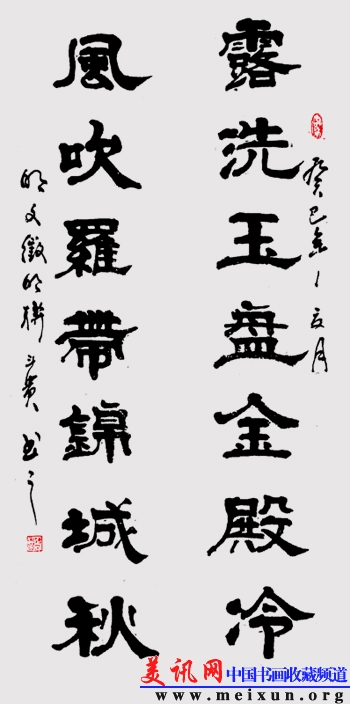 露洗玉盘金殿冷
癸巳年
月
風吹羅帶錦城秋
明文徵明聯
書之
美讯网 中国书画收藏频道
www.meixun.org